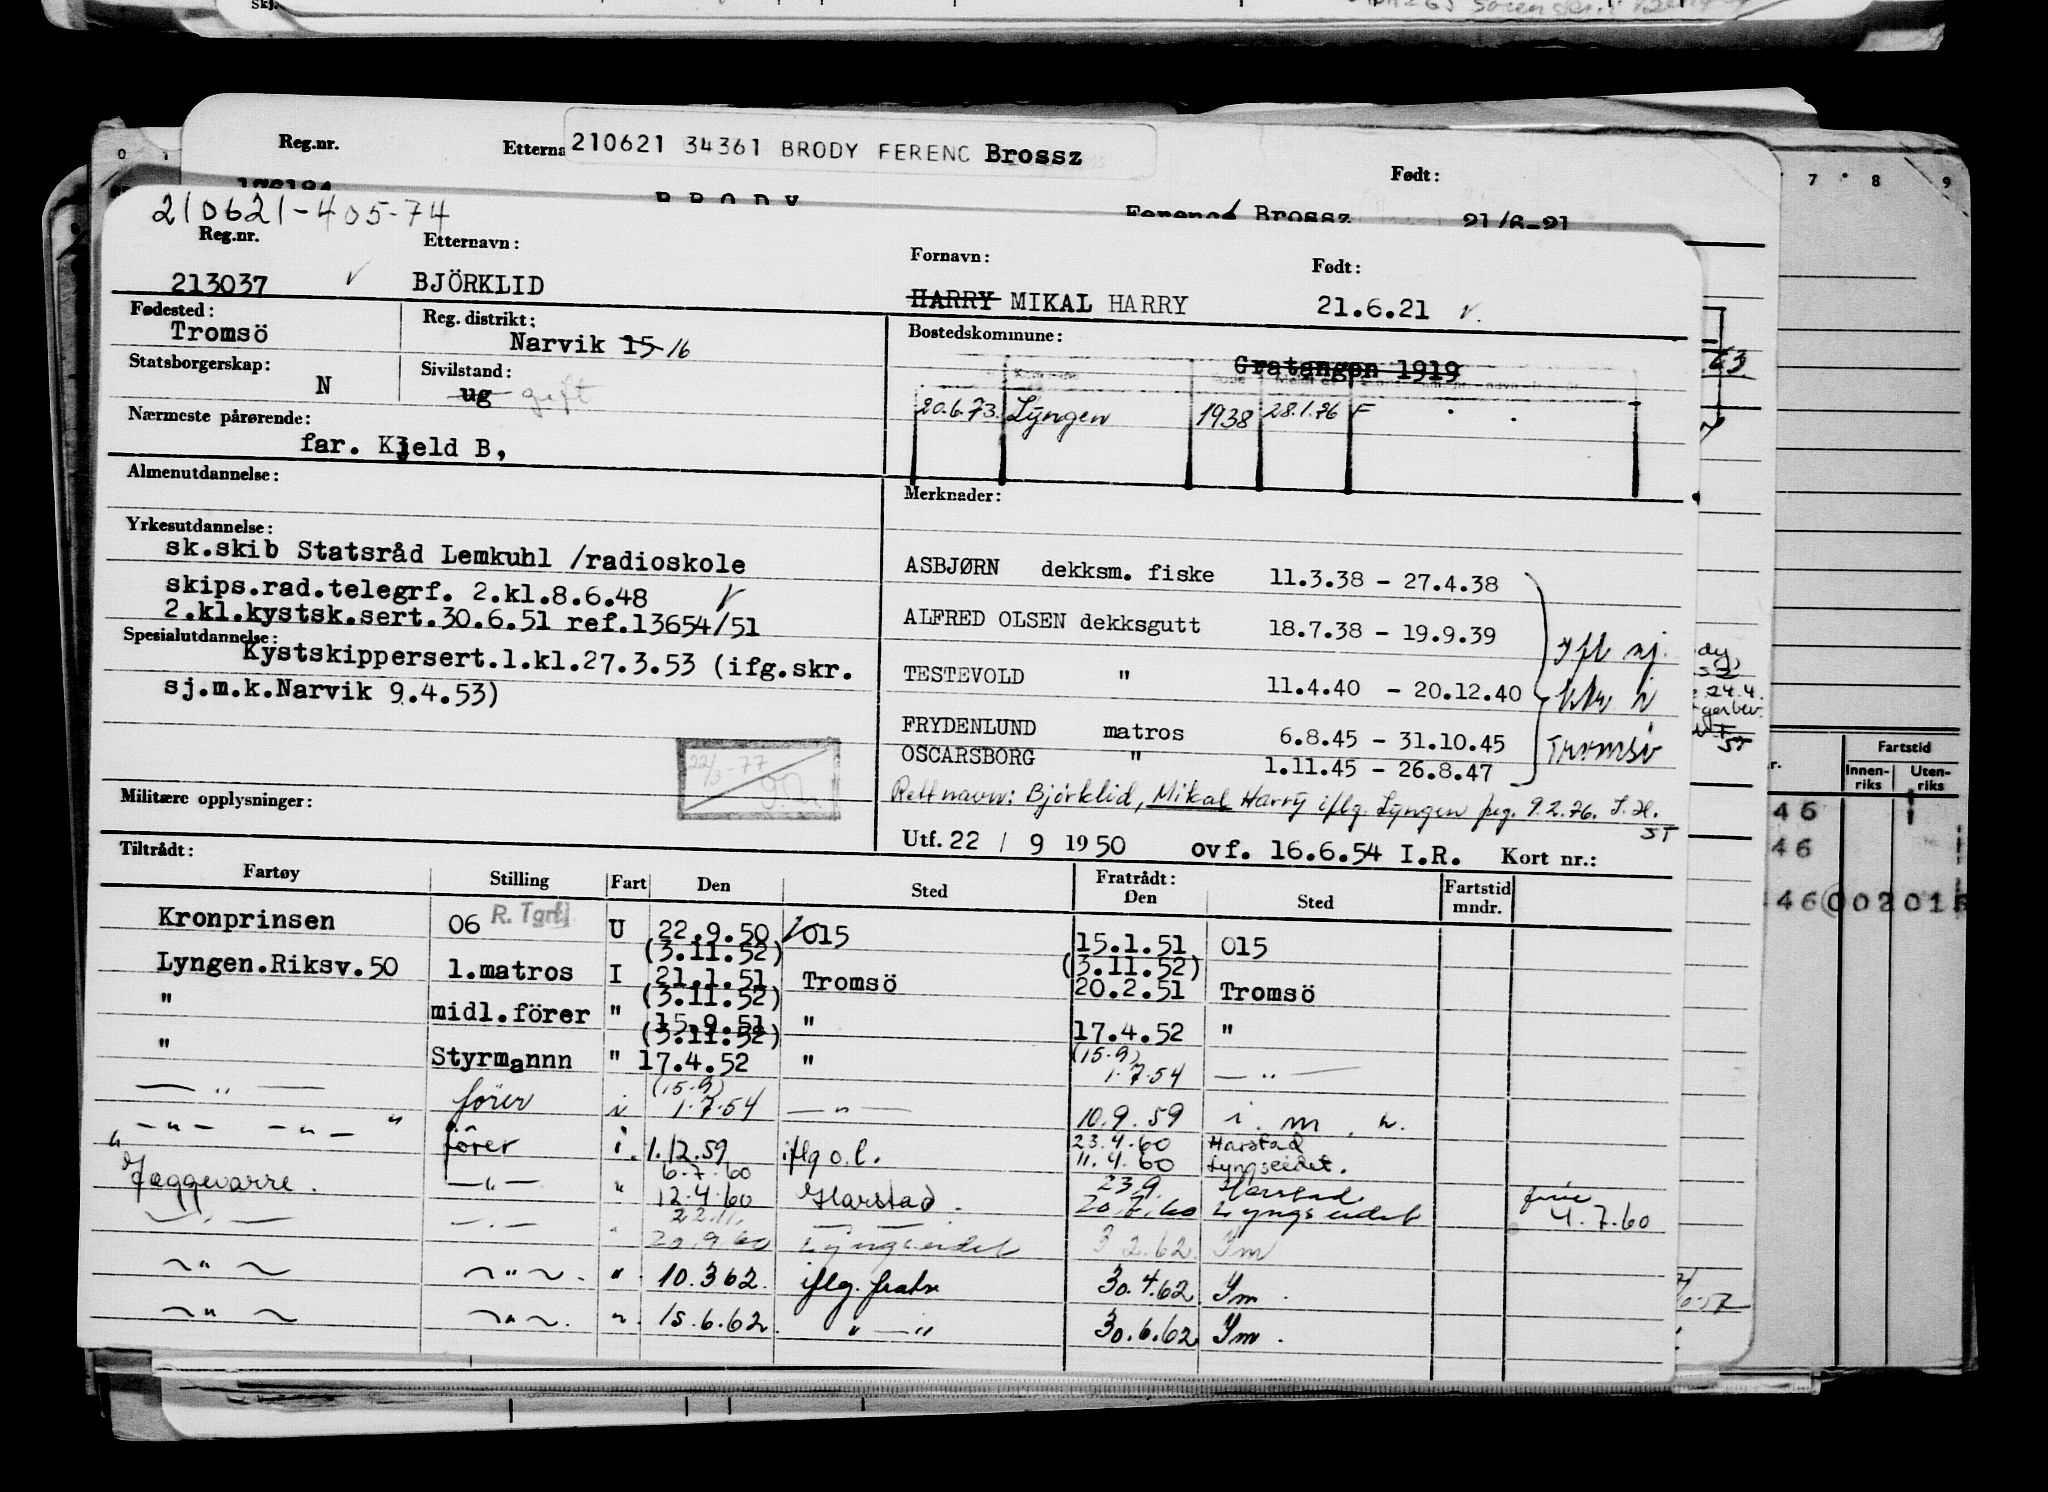 Skj.
Reg.nr.
Etterna
210621 34361 BRODY FERENC Brossz
Født:
BRODY
Ferenc Brossz
21/6-21
210621-405-74
Reg.nr.
Etternavn:
Fornavn:
Født:
213037
BJÖRKLID
HARRY MIKAL HARRY
21.6.21
Fødested:
Tromsö
Reg. distrikt:
Narvik 15 16
Bostedskommune:
Gratangen 1919
Statsborgerskap:
N
Sivilstand:
ug gift
20.6.73. Lyngen 1938 28.1.76 F
Nærmeste pårørende:
far. Kjeld B,
Almenutdannelse:
Merknader:
Yrkesutdannelse:
sk.skib Statsråd Lemkuhl /radioskole
skips.rad.telegrf. 2.kl.8.6.48
2.kl.kystsk.sert.30.6.51 ref.13654/51
Spesialutdannelse:
Kystskippersert.1.kl.27.3.53 (ifg.skr.
sj.m.k.Narvik 9.4.53)
ASBJØRN dekksm. fiske 11.3.38 - 27.4.38
ALFRED OLSEN dekksgutt 18.7.38 - 19.9.39
TESTEVOLD " 11.4.40 - 20.12.40
FRYDENLUND matros 6.8.45 - 31.10.45
OSCARSBORG " 1.11.45 - 26.8.47
Tromsö
22/3-77
Militære opplysninger:
Rett navn: Björklid, Mikal Harry iflg. Lyngen freg. 9.2.76. S.H.
ST
Utf. 22 / 9 1950 ovf. 16.6.54 I.R. Kort nr.:
Tiltrådt:
Fratrådt:
Fartøy Stilling Fart Den Sted Den Sted Fartstid mndr.
Kronprinsen 06 R. Tgrf. U 22.9.50 015 15.1.51 015
(3.11.52) (3.11.52)
Lyngen.Riksv.50 1.matros I 21.1.51 Tromsö 20.2.51 Tromsö
(3.11.52)
" midl.förer " 15.9.51 " 17.4.52 "
(3.11.52)
" Styrmannn " 17.4.52 " (15.9) 1.7.54 — " —
— " — förer i (15.9) 1.7.54 — " — 10.9.59 i. m.
— " — — " — " förer i. 1.12.59 iflg o.l. 23.4.60 Harstad
11.4.60 Lyngseidet.
6.7.60 23.9. Harstad
" Jæggevarre. — " — " 12.4.60 Harstad. 20.7.60 Lyngseidet 4.7.60
22.11.
— " — — " — " 20.9.60 Lyngseidet 3 2.62. Ym
— " — — " — . " 10.3 62. iflg. fratr 30.4.62. Ym.
— " — — " — . " 15.6.62. " — " 30.6.62 Ym.
0 1
7 8 9
63
24.4.
ST
Fartstid
Innen-riks
Uten-riks
46
46
46 002 01